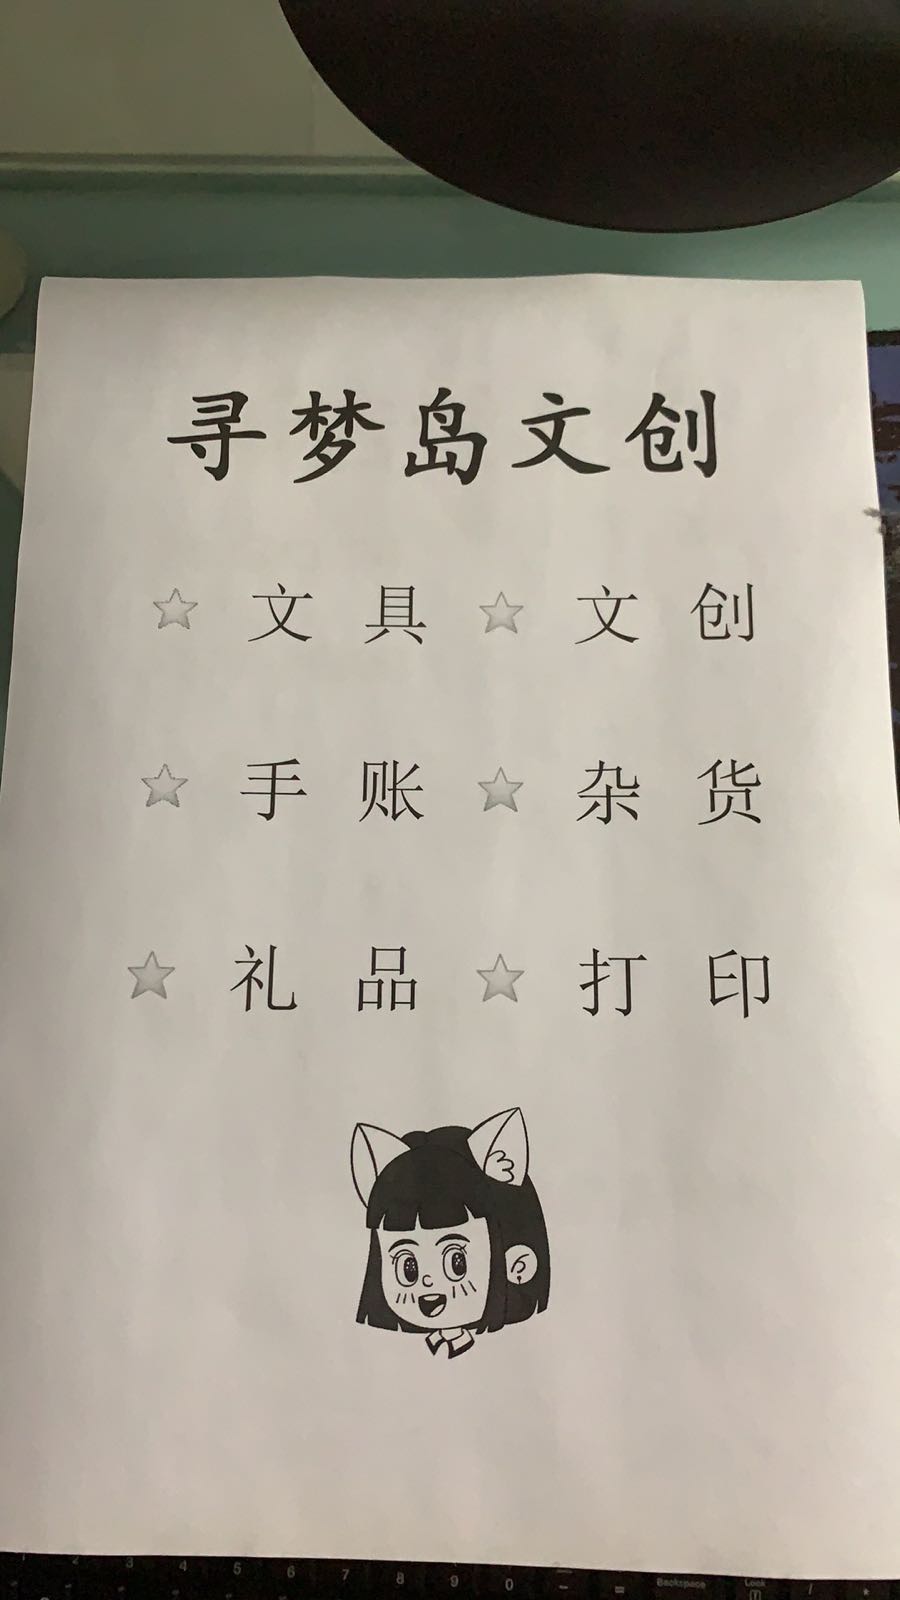 寻梦岛文创
☆ 文具 ☆ 文创
☆ 手账 ☆ 杂货
☆ 礼品 ☆ 打印
2 3 4 5 6 7 8 9 0 - = Backspace / *